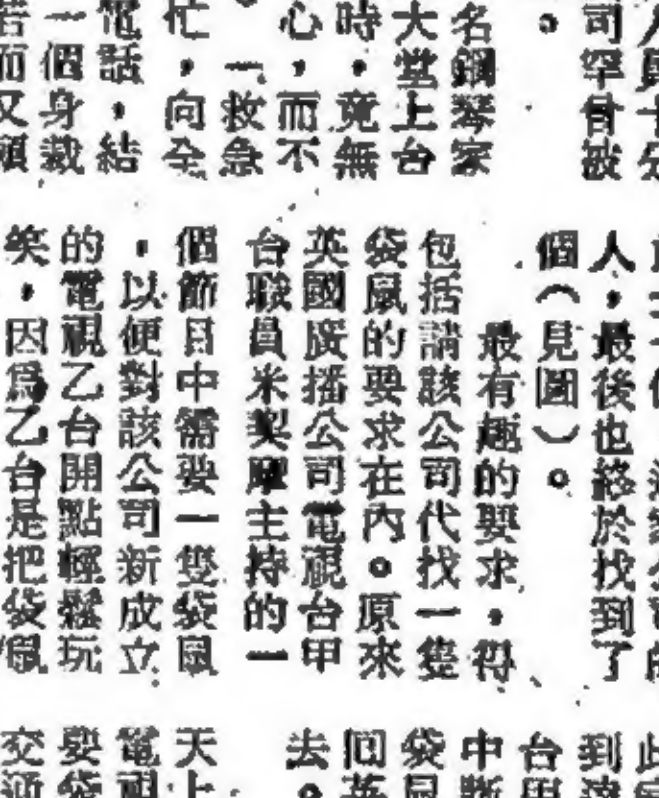 人員十分
司罕曾被
。
名鋼琴家
大堂上台
時，竟無
心，而不
。一救急
忙，向全
電話，結
一個身裁
而又頗
人，最後也終於找到了
個（見圖）。
最有趣的要求，得
包括請該公司代找一隻
袋鼠的要求在內。原來
英國廣播公司電視台甲
台職員米契摩主持的一
個節目中需要一隻袋鼠
，以便對該公司新成立
的電視乙台開點輕鬆玩
笑，因爲乙台是把袋鼠
此
到
台
中斷
袋鼠
囘英
去。
天上
電視
要袋
交通